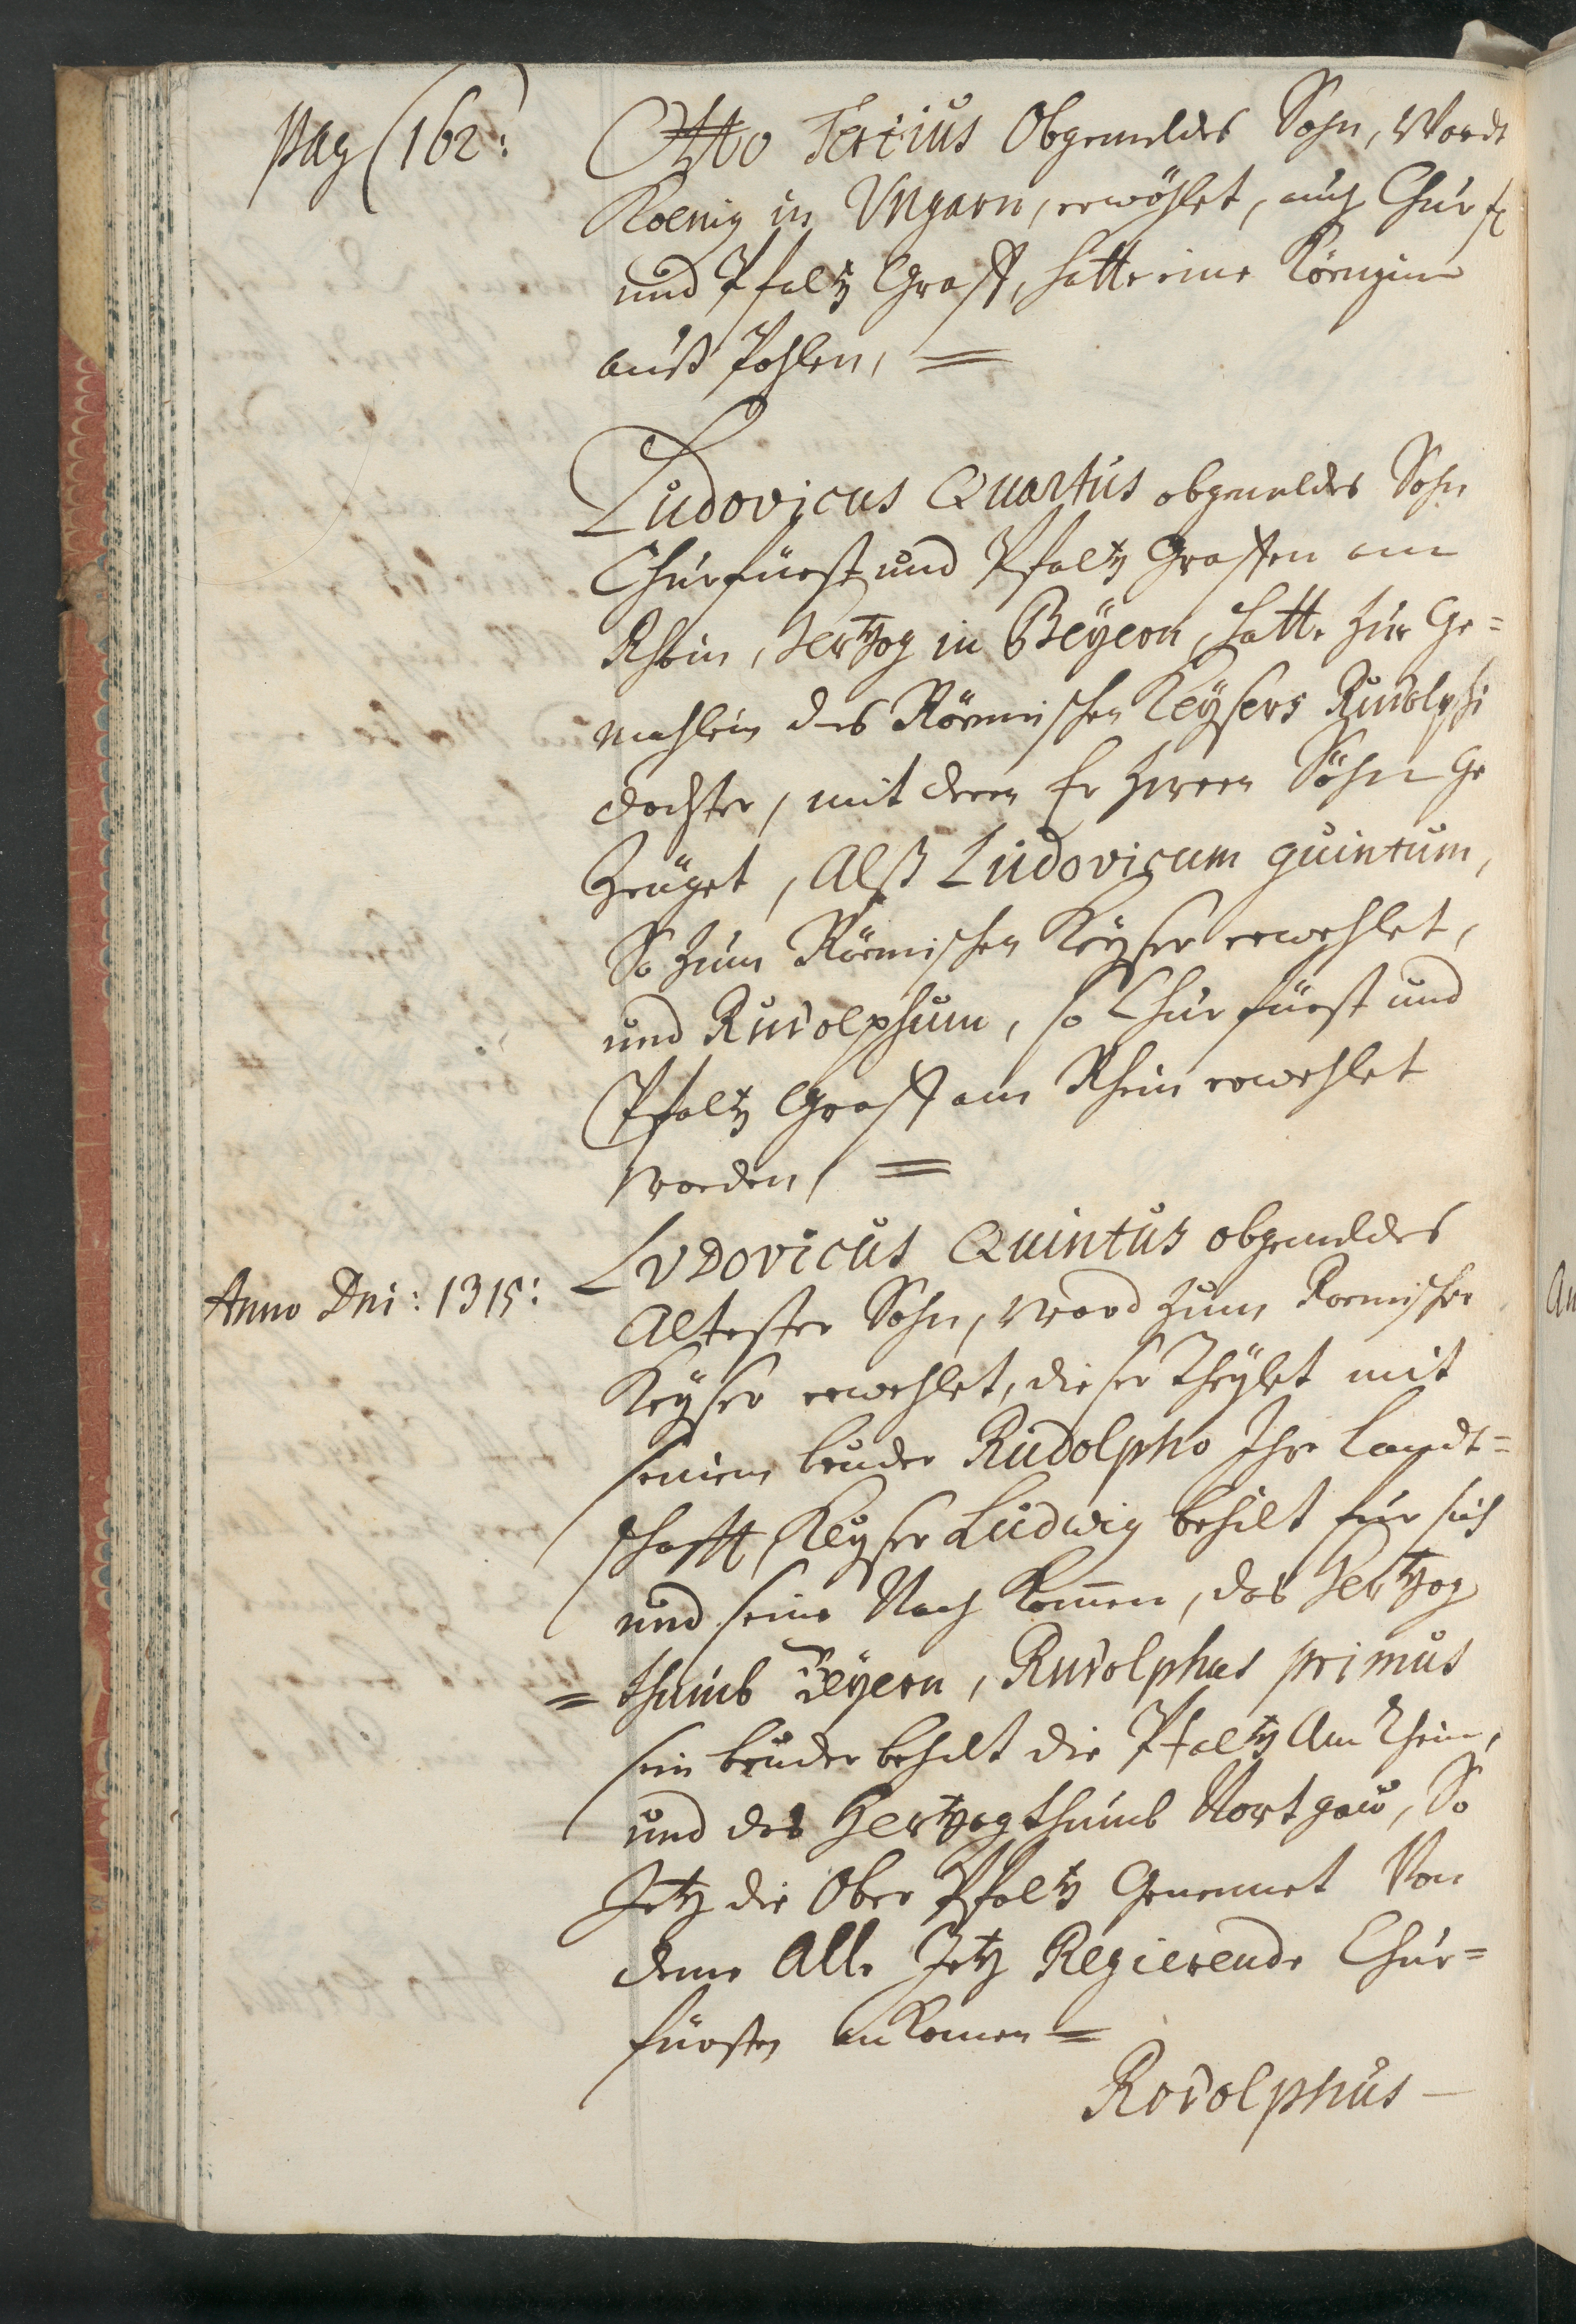 pag (162:
Otto Tertius Obgemeldes Sohn, Wardt
Koenig in Vngarn, erwöhlet, auch Churf
und Pfaltz Graff, hatte eine Könngin
auß Pohlen, =
Ludovicus Quartus obgemeldes Sohn
Churfürst und Pfaltz Graffen am
Rhein, Hertzog in Beÿern, hatte zur Ge=
mahlin des Römischen Keÿsers Rudolphi
dochter, mit deren Er zween Söhn Ge
Zeüget, Alß Ludovicum quintum,
So zum Römischen Keÿser erwehlet,
und Rudolphum, so Churfürst und
Pfaltz Graff am Rhein erwehlet
worden, =
LVDovicus Quintus obgemeldes
Anno Dni: 1315:
Altester Sohn, ward zum Roemischen
Keÿser erwehlet, dieser Theÿlet mit
seinem bruder Rudolpho Ihre Landt=
schafft, Keÿser Ludwig behilt für sich
und seine Nach Komen, das Hertzog
= thumb Beÿern, Rudolphus primus
sein bruder behilt die Pfaltz Am Rhein,
und das Hertzogthumb Nortgaw, So
Jetz die Ober Pfaltz Genennet Von
deme Alle Jetz Regierende Chur=
fürsten ankomen =
Rodolphus